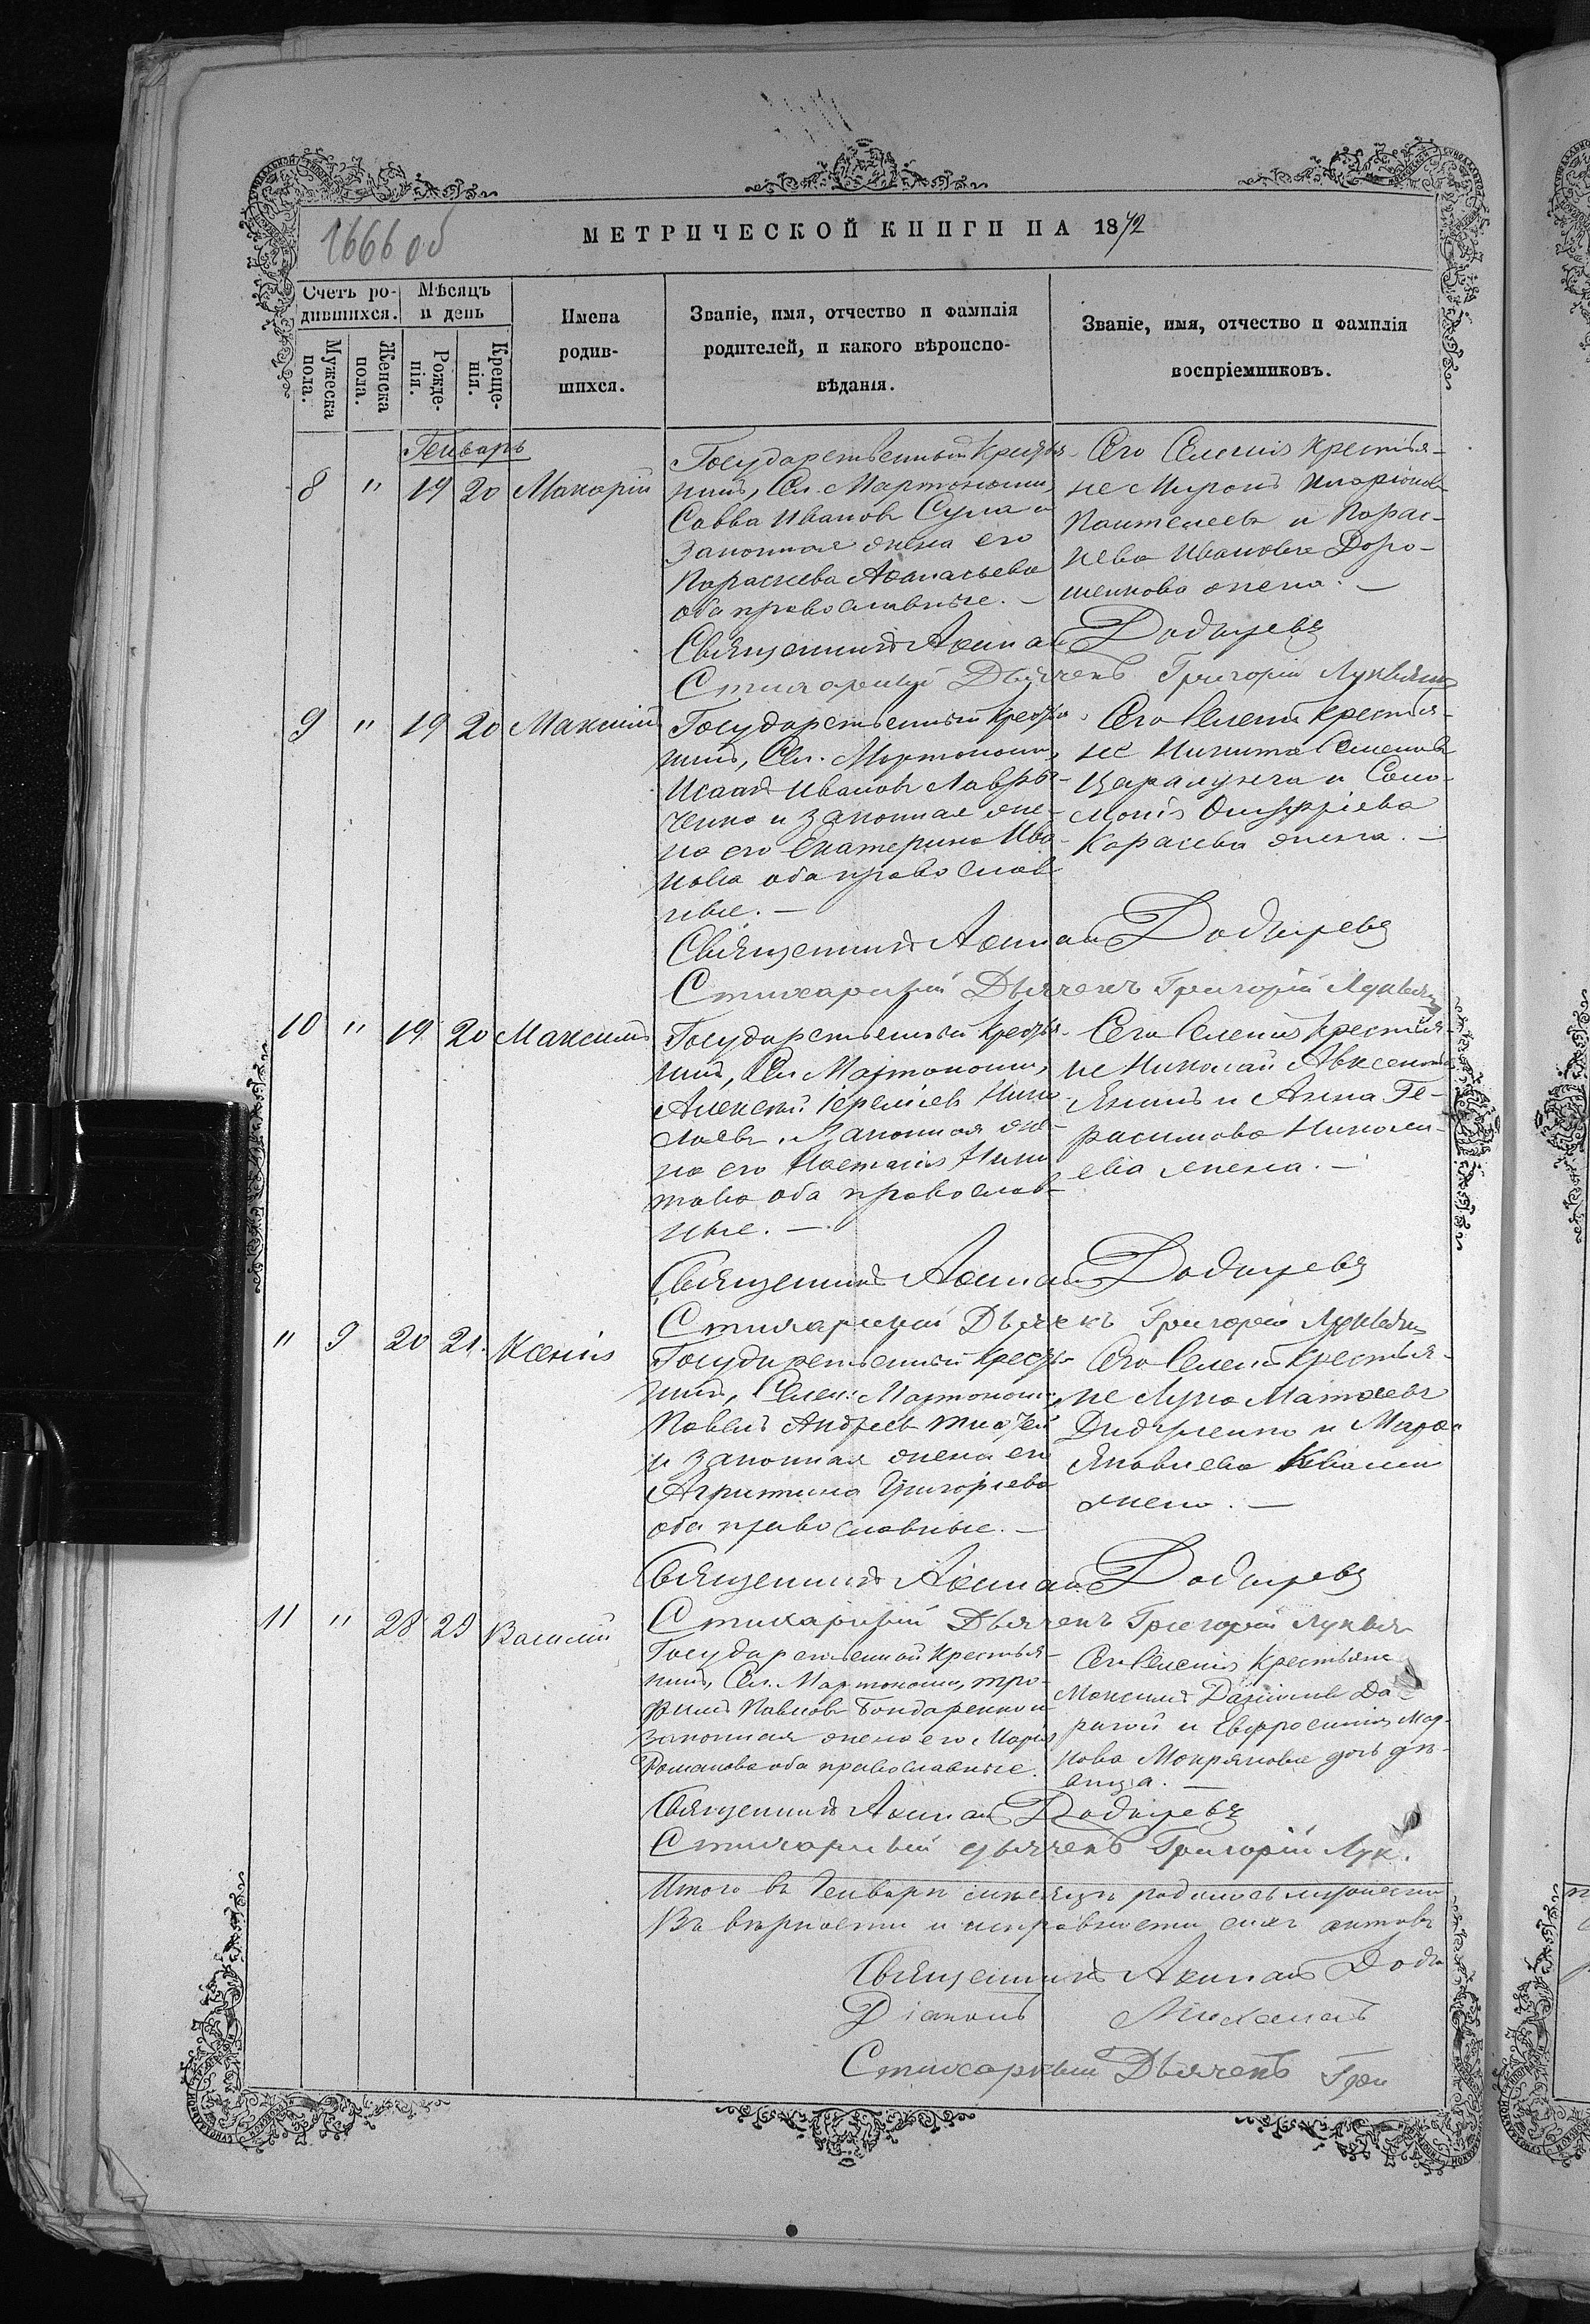 1666 об
МЕТРИЧЕСКОЙ КНИГИ НА 1872
Счетъ ро-
дившихся.
Мѣсяцъ
и день
Мужеска
пола.
Женска
пола.
Рожде-
нія.
Креще-
нія.
Имена
родив-
шихся.
Званіе, имя, отчество и фамилія
родителей, и какого вѣроиспо-
вѣданія.
Званіе, имя, отчество и фамилія
воспріемниковъ.
Генварь
8 " 19 20 Макарій
Государственный крестья-
нинъ, Сел. Мартоноши,
Савва Ивановъ Сула и
законная жена его
Параскева Аѳанасьева
оба православные. —
Сего Селенія крестья-
не Миронъ Иларіоновъ
Пантелеевъ и Парас-
кева Иванова Доро-
шенкова жена. —
Священникъ Додыревъ
Стихарный Дьячекъ Григорій Лукьян
9 " 19 20 Максимъ
Государственный крестья-
нинъ, Сел. Мартоноши,
Исаакъ Ивановъ Лавры-
ченко и законная же-
на его Екатерина Ива-
нова оба православ
ные. —
Сего Селенія крестья-
не Никита Семеновъ
и Соло-
монія Онуфріева
Карачева жена. —
Священникъ Додыревъ
Стихарный Дьячекъ Григорій Лукьян
10 " 19 20 Максимъ
Государственный крестья-
нинъ, Сел. Мартоноши,
Алексѣй Іереміевъ Нико-
лаевъ и законная же-
на его Настасія Ники
това оба православ-
ные. —
Сего Селенія крестья-
не Николай Авксентіевъ
Якимъ и Анна Ге-
расимова Никола-
ева жена. —
Священникъ Додыревъ
Стихарный Дьячекъ Григорій Лукьян
" 9 20 21. Ксенія
Государственный крестья-
нинъ, Селен. Мартоноши,
Павелъ Андреевъ Ткачей
и законная жена его
Агрипина Григорьева
оба православные. —
Сего Селенія крестья-
не Лука Матѳеевъ
Диденко и Марѳа
Яковлева
жена. —
Священникъ Додыревъ
Стихарный Дьячекъ Григорій Лукьян
11 " 28 29 Василій
Государственный крестья-
нинъ, Сел. Мартоноши, Тро-
фимъ Павловъ Бондаренко и
законная жена его Марія
Романова оба православные.
Сего Селенія крестьяне
Максимъ Даниловъ Да-
и Евфросинія Мар-
кова Мокрякова дочь дѣ-
вица. —
Священникъ Додыревъ
Стихарный дьячекъ Григорій Лук.
Итого въ Генварѣ мѣсяцѣ родилось мужеска
Въ вѣрности и исправности сихъ актовъ
Священникъ Доды
Діаконъ Михаилъ
Стихарный Дьячекъ Гри